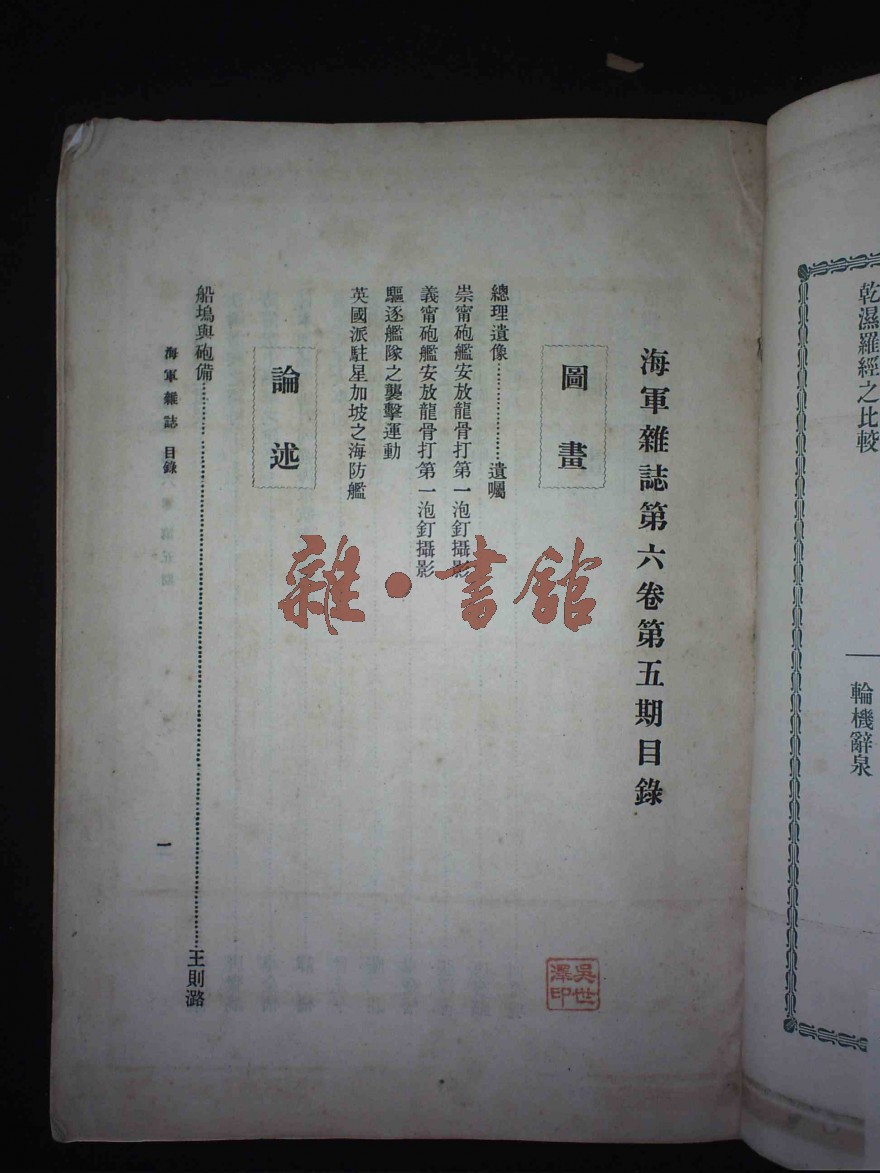 乾濕羅經之比較
輪機辭泉
海軍雜誌第六卷第五期目錄
圖畫
總理遺像………………遺囑
崇甯砲艦安放龍骨打第一泡釘攝影
義甯砲艦安放龍骨打第一泡釘攝影
驅逐艦隊之襲擊運動
英國派駐星加坡之海防艦
論述
船塢與砲備………………王則潞
海軍雜誌 目錄
一
雜·書館
吳世澤印